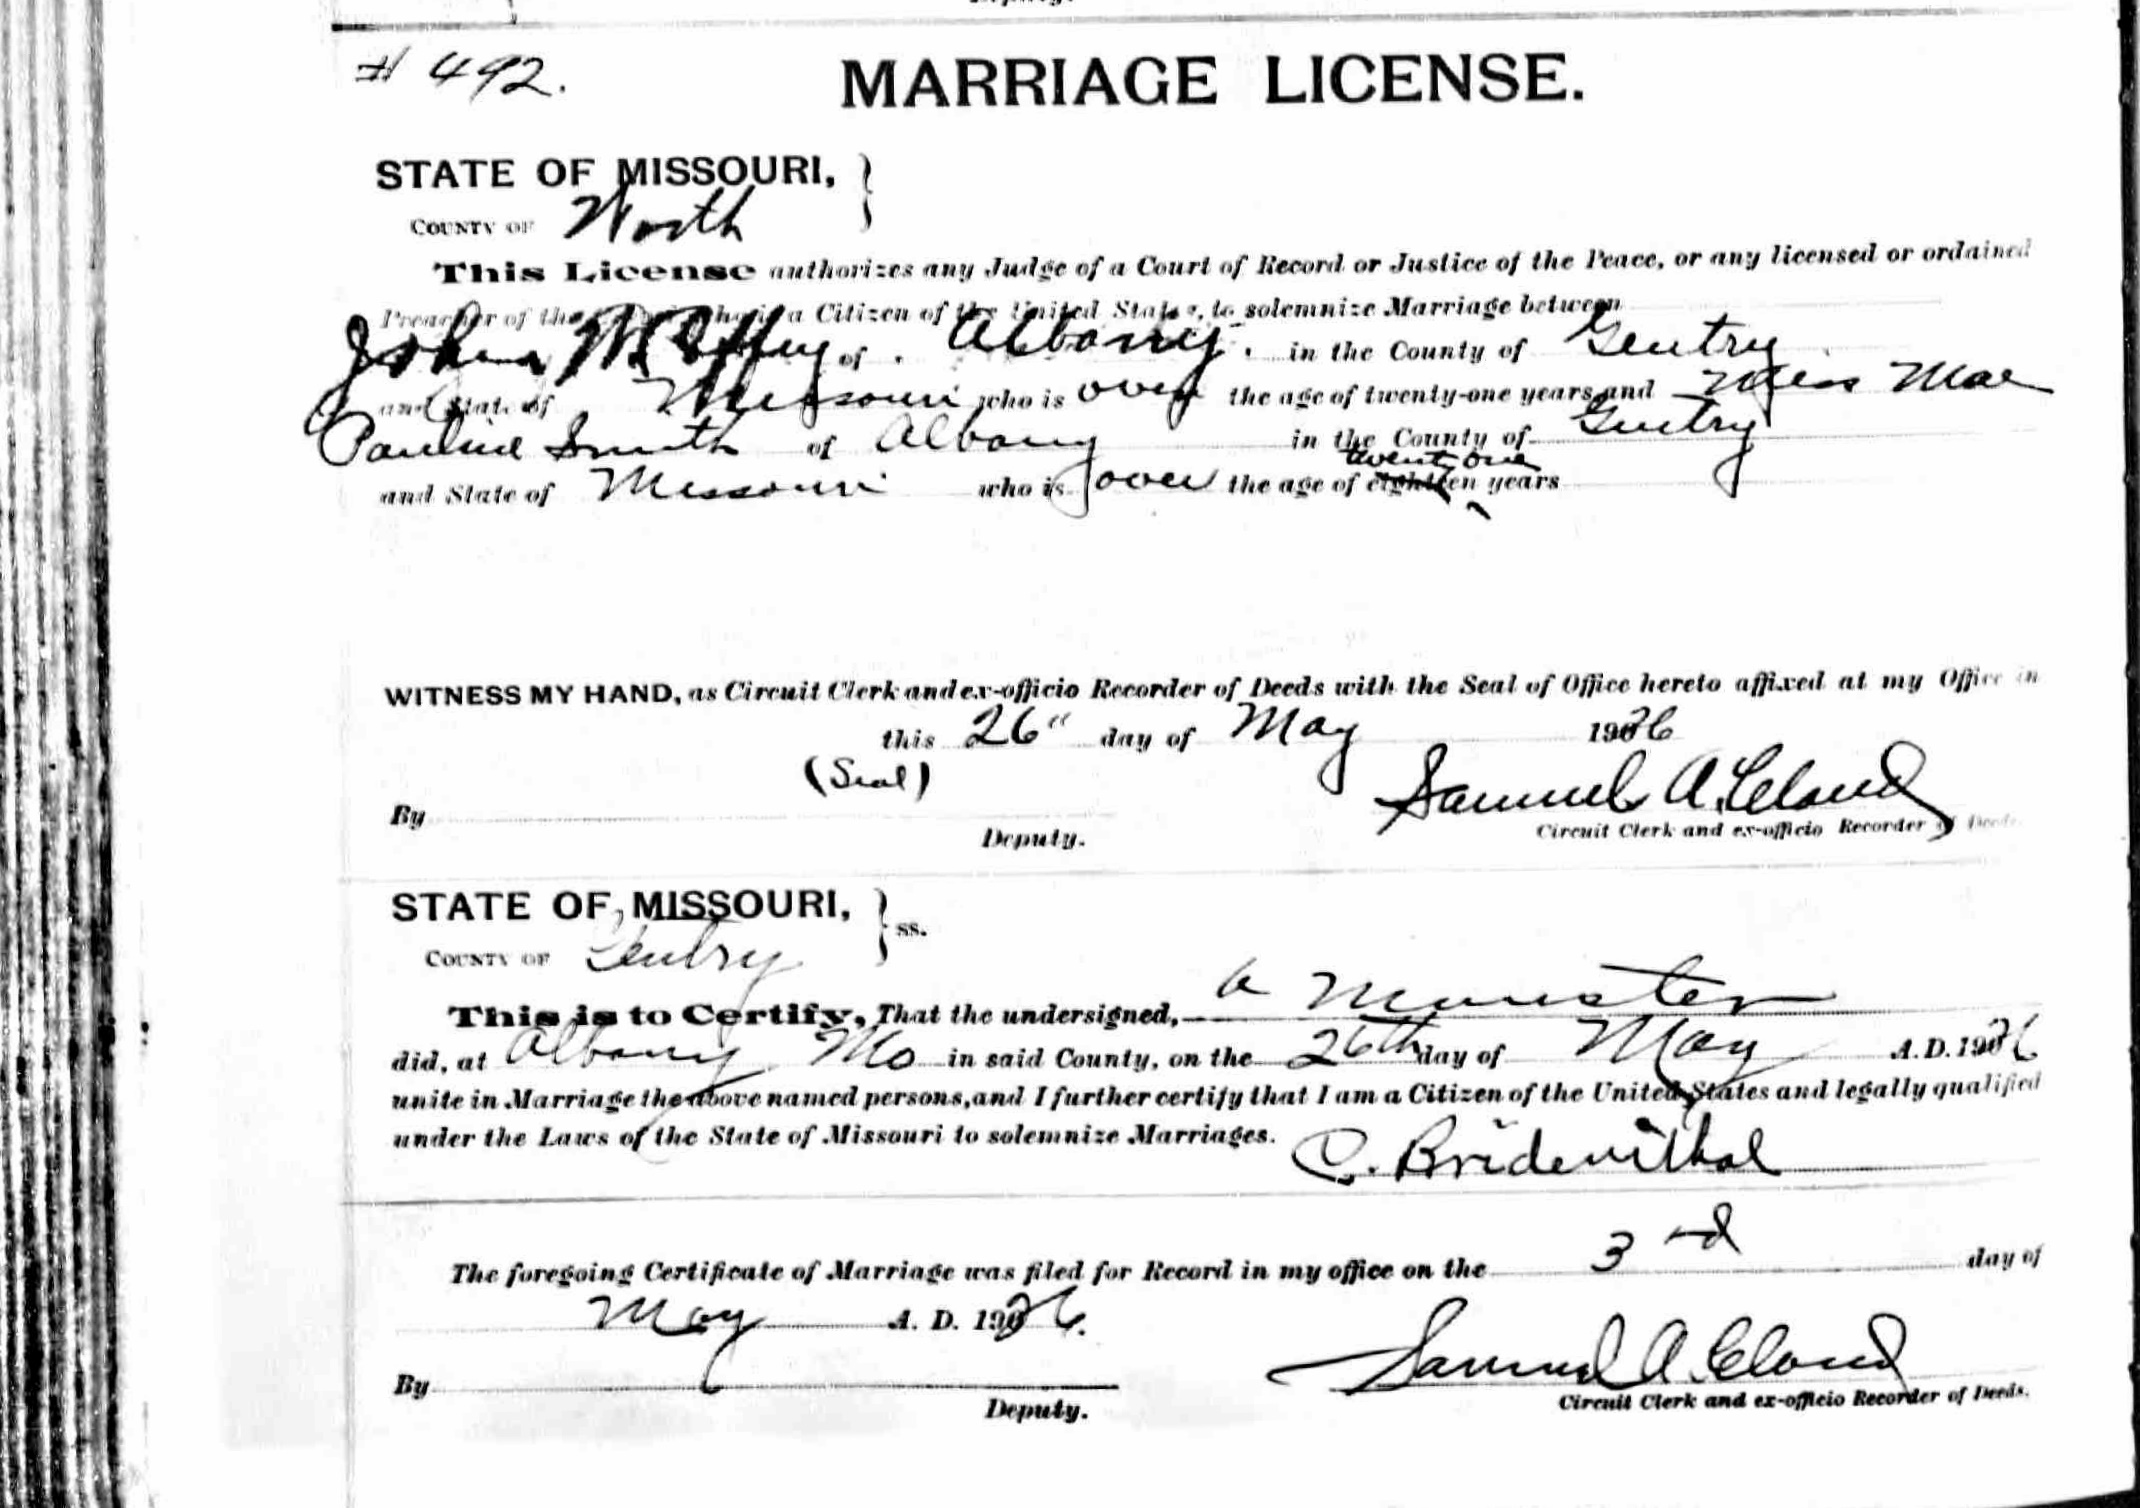 # 492.
MARRIAGE LICENSE.
STATE OF MISSOURI,
COUNTY OF Worth
This License authorizes any Judge of a Court of Record or Justice of the Peace, or any licensed or ordained
Preacher of the a Citizen of the United States, to solemnize Marriage between
John of Albany. in the County of Gentry
and State of Missouri who is over the age of twenty-one years and Miss Mae
Pauline Smith of Albany in the County of Gentry
twenty one
and State of Missouri who is over the age of eighteen years
WITNESS MY HAND, as Circuit Clerk and ex-officio Recorder of Deeds with the Seal of Office hereto affixed at my Office in
this 26" day of May 1926
(Seal)
Samuel A. Cloud
By
Deputy.
Circuit Clerk and ex-officio Recorder of Deeds.
STATE OF MISSOURI,
ss.
COUNTY OF Gentry
This is to Certify, That the undersigned, a Minister
did, at Albany Mo in said County, on the 26th day of May A.D. 1926
unite in Marriage the above named persons, and I further certify that I am a Citizen of the United States and legally qualified
under the Laws of the State of Missouri to solemnize Marriages.
C. Bridenithal
The foregoing Certificate of Marriage was filed for Record in my office on the 3rd day of
May A. D. 1926.
Samuel A. Cloud
By
Deputy.
Circuit Clerk and ex-officio Recorder of Deeds.